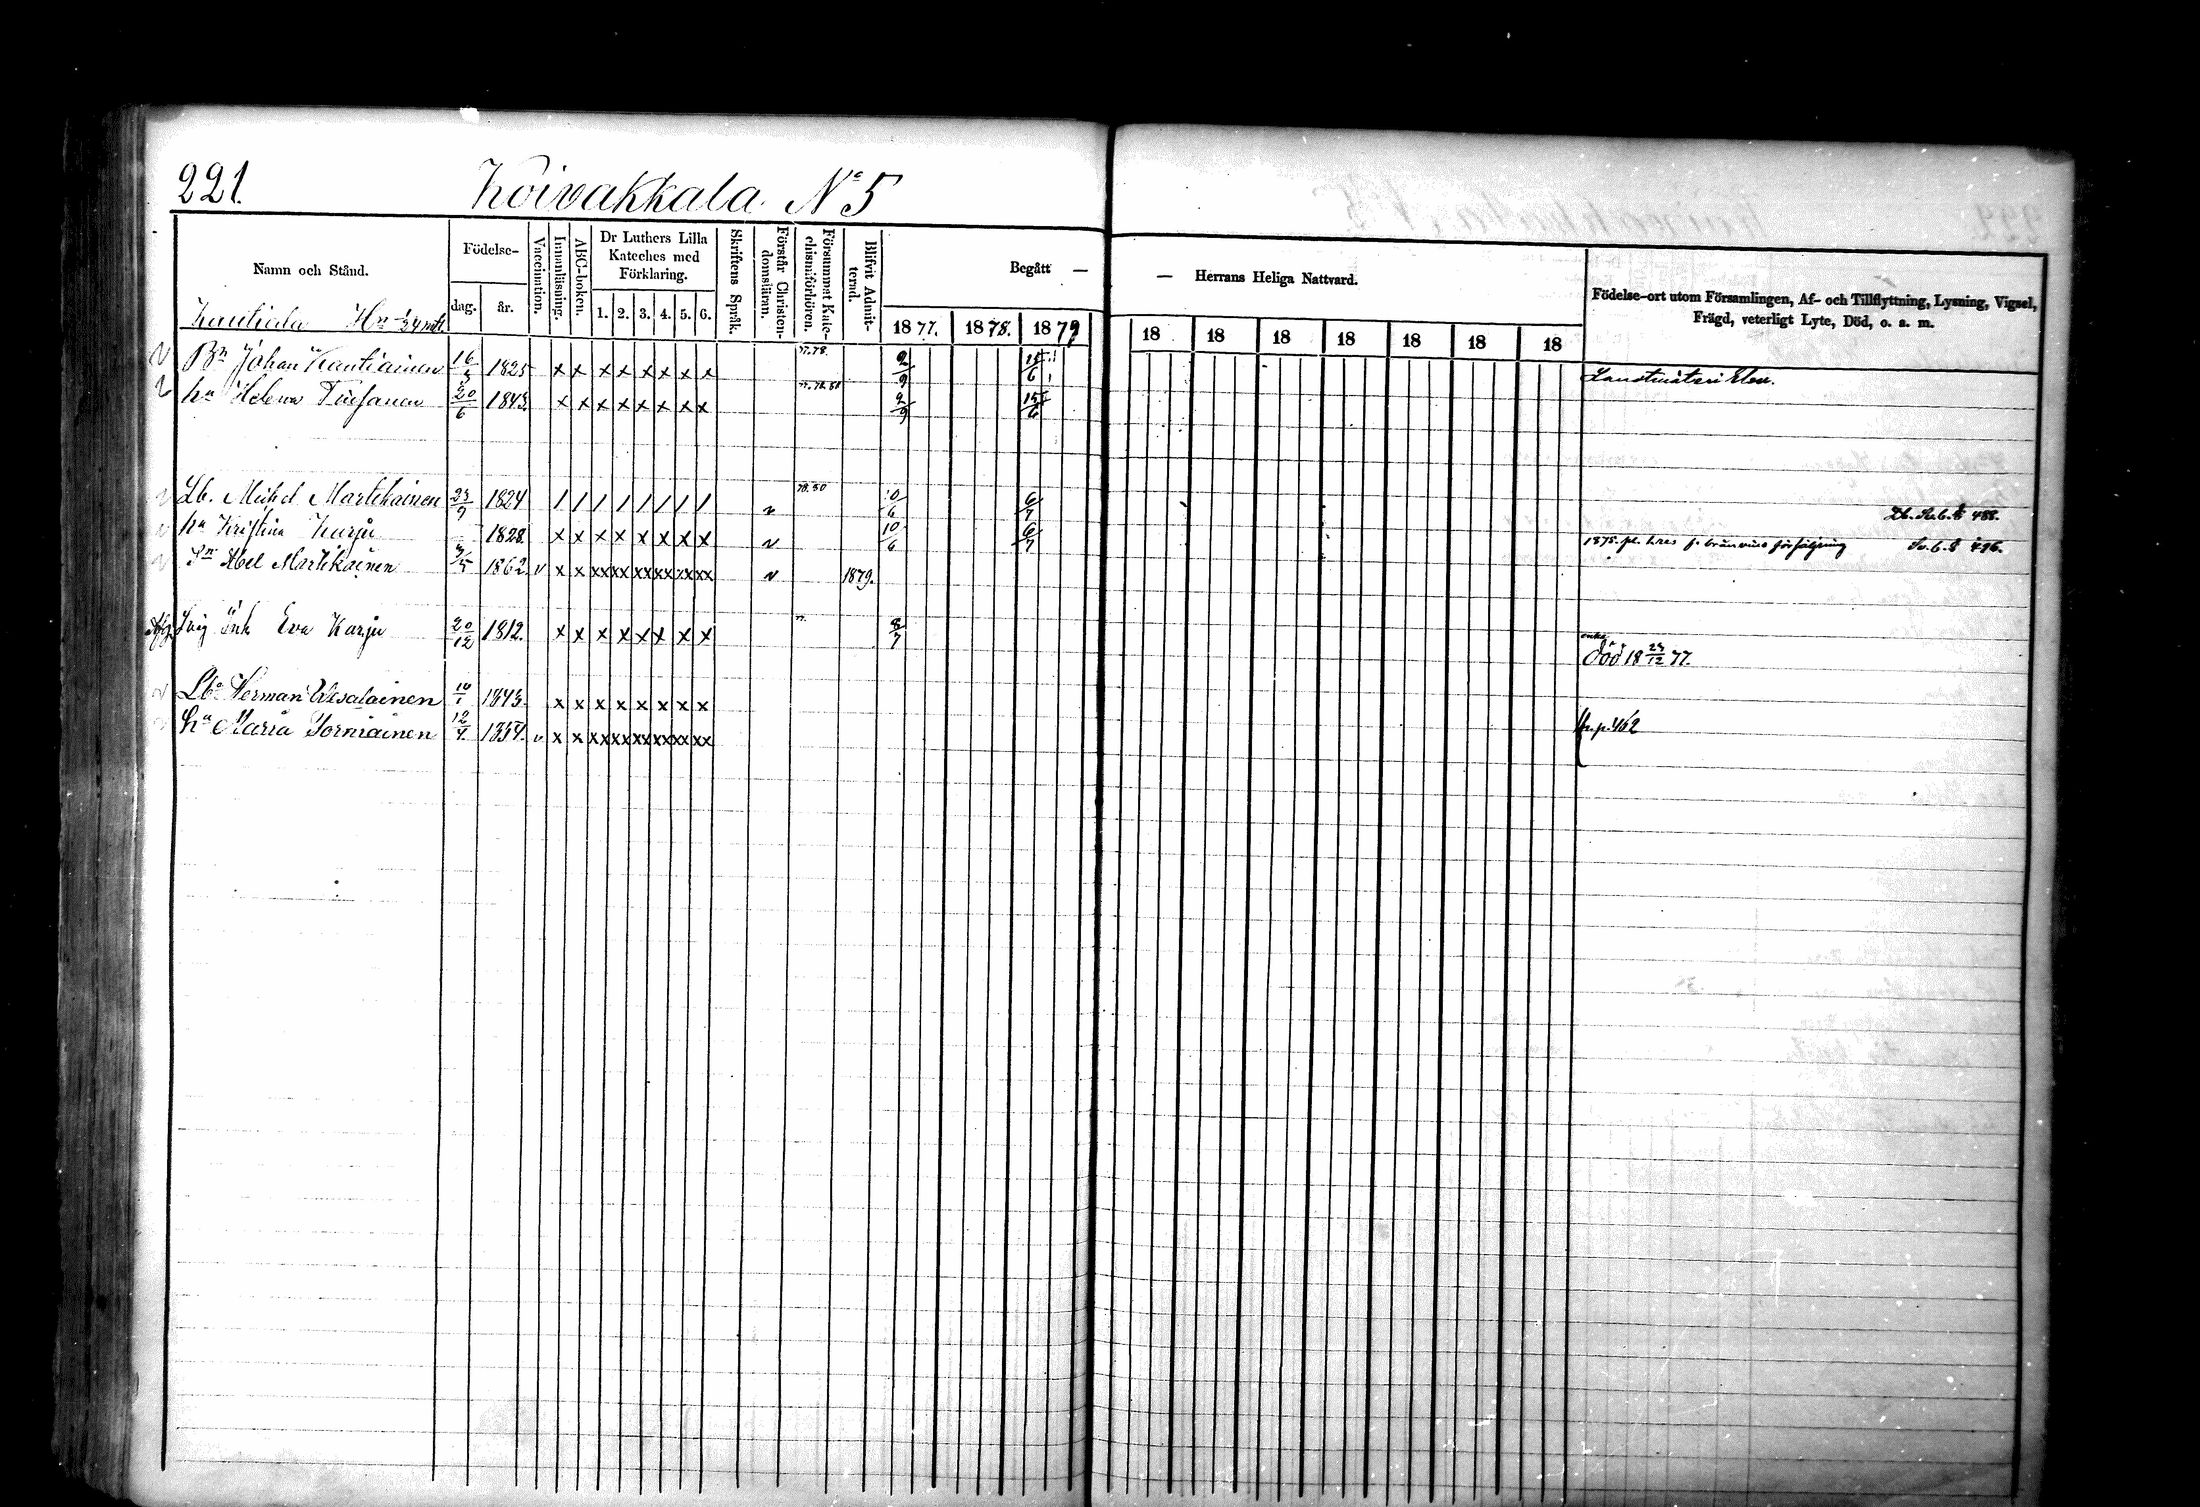 221. Koivakkala No 5
Namn och Stånd. Födelse- dag. år. Vaccination. Innanläsning. ABC-boken. Dr Luthers Lilla Kateches med Förklaring. 1. 2. 3. 4. 5. 6. Skriftens Språk. Förstår Christendomsläran. Försummat Katechismiförhören. Blifvit Admitterad. Begått — — Herrans Heliga Nattvard. Födelse-ort utom Församlingen, Af- och Tillflyttning, Lysning, Vigsel, Frägd, veterligt Lyte, Död, o. a. m.
1877. 1878. 1879 18 18 18 18 18 18 18
Kautiala Hn 1/24 mtl.
Bn Johan Kautiainen 16/5 1825 x x x x x x x x 77.78. 2/9 15/6
hu Helena Tiusanen 20/6 1843. x x x x x x x x 77.78.80 2/9 15/6
Lb. Michel Martikainen 23/9 1824 / / / / / / / / v 78.80 10/6 6/7 Lb. S.b.
hu Kristina Karju 1828. x x x x x x x x v 10/6 6/7 1875. f. bränvins försäljning S.b. 496.
Sn Abel Martikainen 3/5 1862. v x x xx xx xx xx xx xx v 1879.
Enk Eva Karju 20/12 1812. x x x x x x x x 77. 8/7 enka död 18 23/12 77.
Lb Herman Utsalainen 10/1 1843 x x x x x x x x
hu Maria Torniainen 12/4. 1854. v x x xx xx xx xx xx xx fr. p. 462